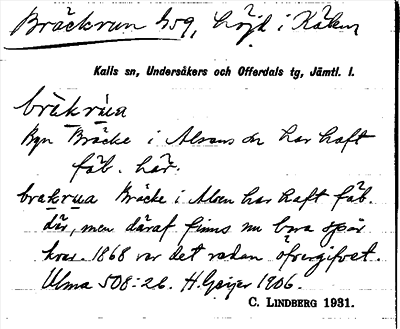 Bräckvun 659, höjd i Kölen
Kalls sn, Undersåkers och Offerdals tg, Jämtl. l.
bräkrúa
Byn Bräcke i Alsens sn har haft
fäb. här.
brakrua Bräcke i Alsen har haft fäb.
där, men däraf finns nu bara spår
kvar. 1868 var det redan öfvergifvet.
Ulma 508:26. H. Geijer 1906.
C. LINDBERG 1931.